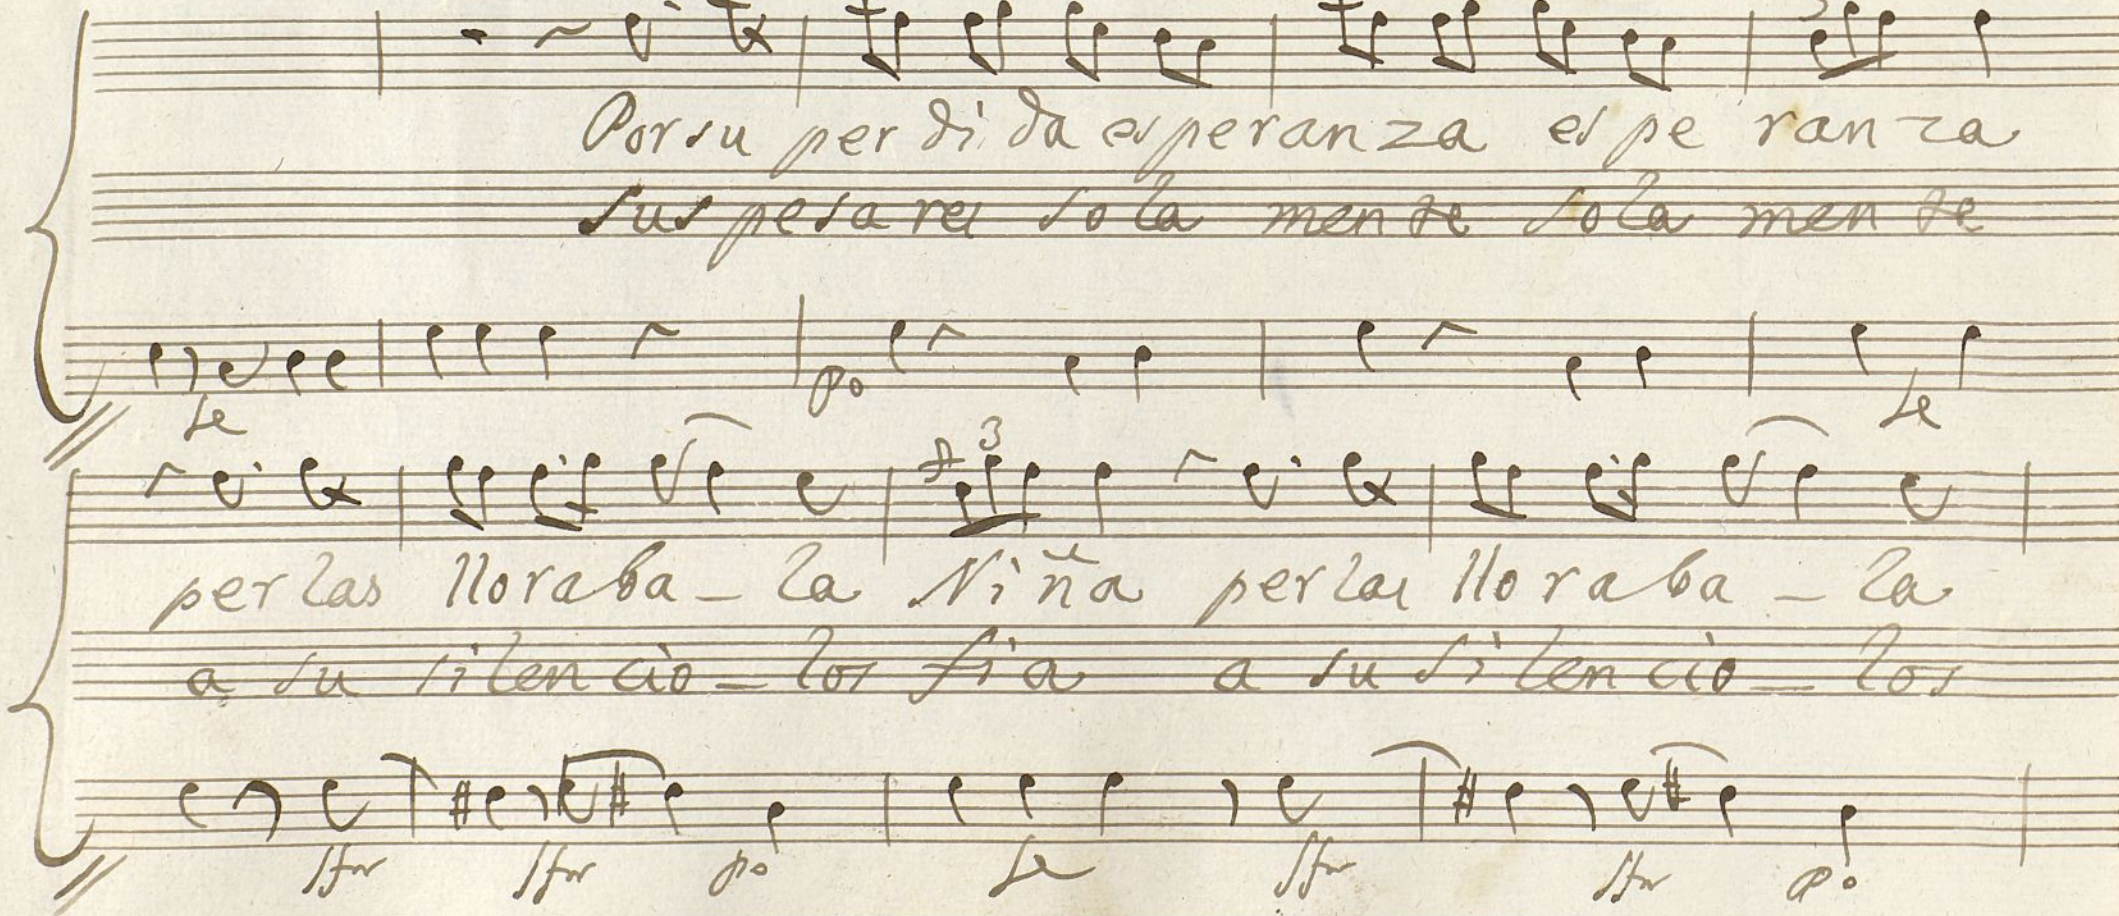 Por su per di da es peran za es pe ran za
sus pesares sola mente sola mente
po
fe
fe
3
perlas lloraba _ la Niña perlas lloraba _ la
a su silencio _ los fia a su silencio _ los
sfor sfor po fe sfor sfor po